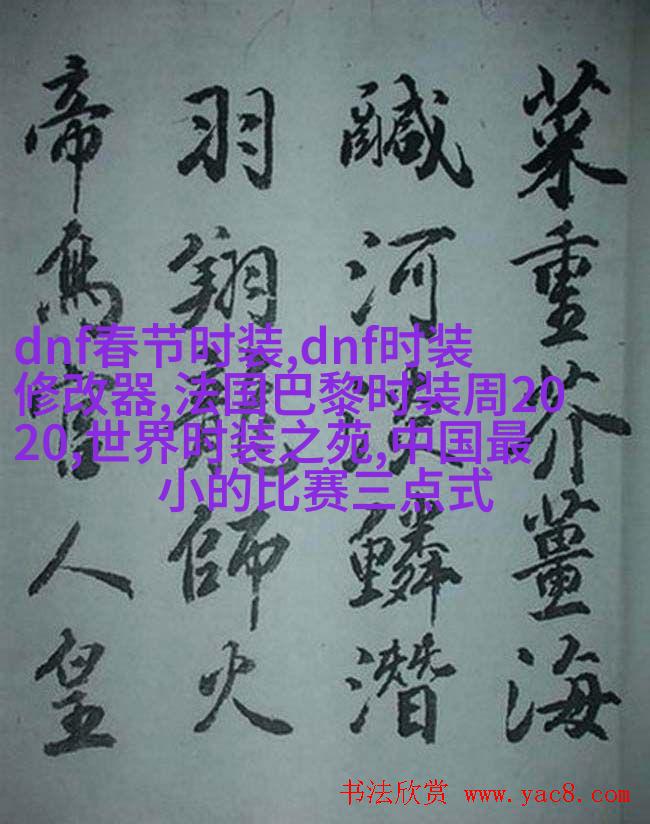 菜重芥薑海
鹹河淡鱗潛
羽翔龍師火
帝鳥官人皇
dnf春节时装,dnf时装
修改器,法国巴黎时装周20
20,世界时装之苑,中国最
小的比赛三点式
书法欣赏 www.yac8.com